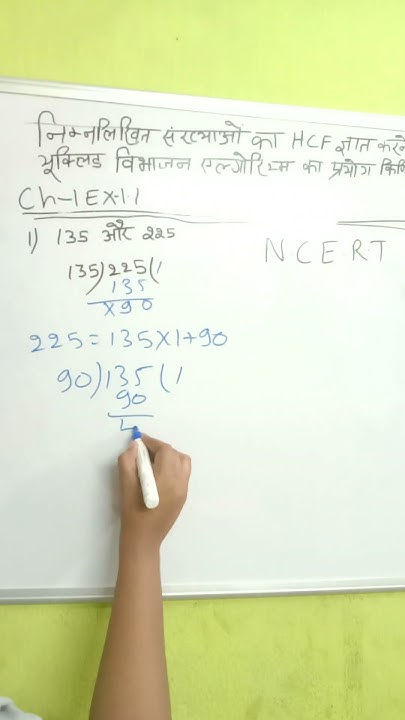 निम्नलिखित संख्याओं का HCF ज्ञात करने
यूक्लिड विभाजन एल्गोरिथ्म का प्रयोग
Ch-1 EX-1.1
1) 135 और 225
NCERT
135)225(1
135
×90
225=135×1+90
90)135(1
90
4